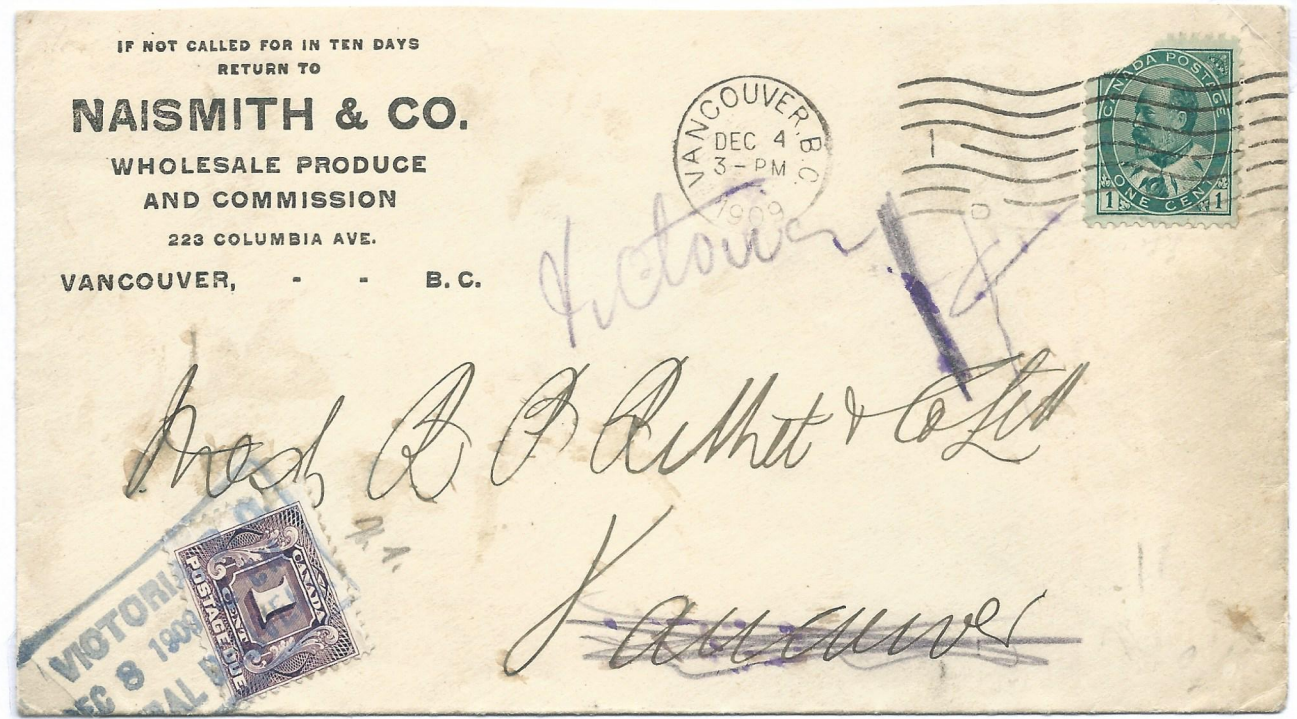 IF NOT CALLED FOR IN TEN DAYS
RETURN TO
NAISMITH & CO.
WHOLESALE PRODUCE
AND COMMISSION
223 COLUMBIA AVE.
VANCOUVER, - - B. C.
VANCOUVER, B.C.
DEC 4
3-PM
1909
CANADA POSTAGE
ONE CENT
1 1
Victoria
Mess R P Rithet & Co Ltd
Vancouver
VICTORIA
DEC 8 1909
CANADA
1
CENT
POSTAGE DUE